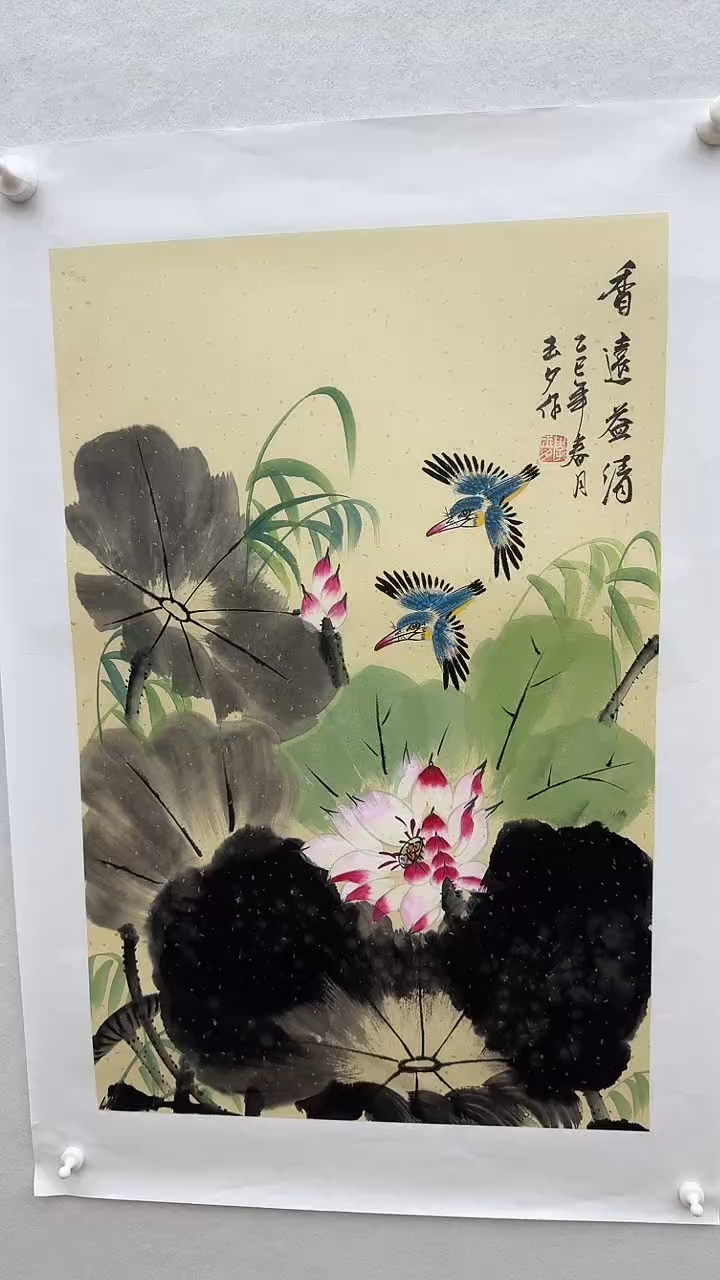 香遠益清
乙巳年春月
玉夕作